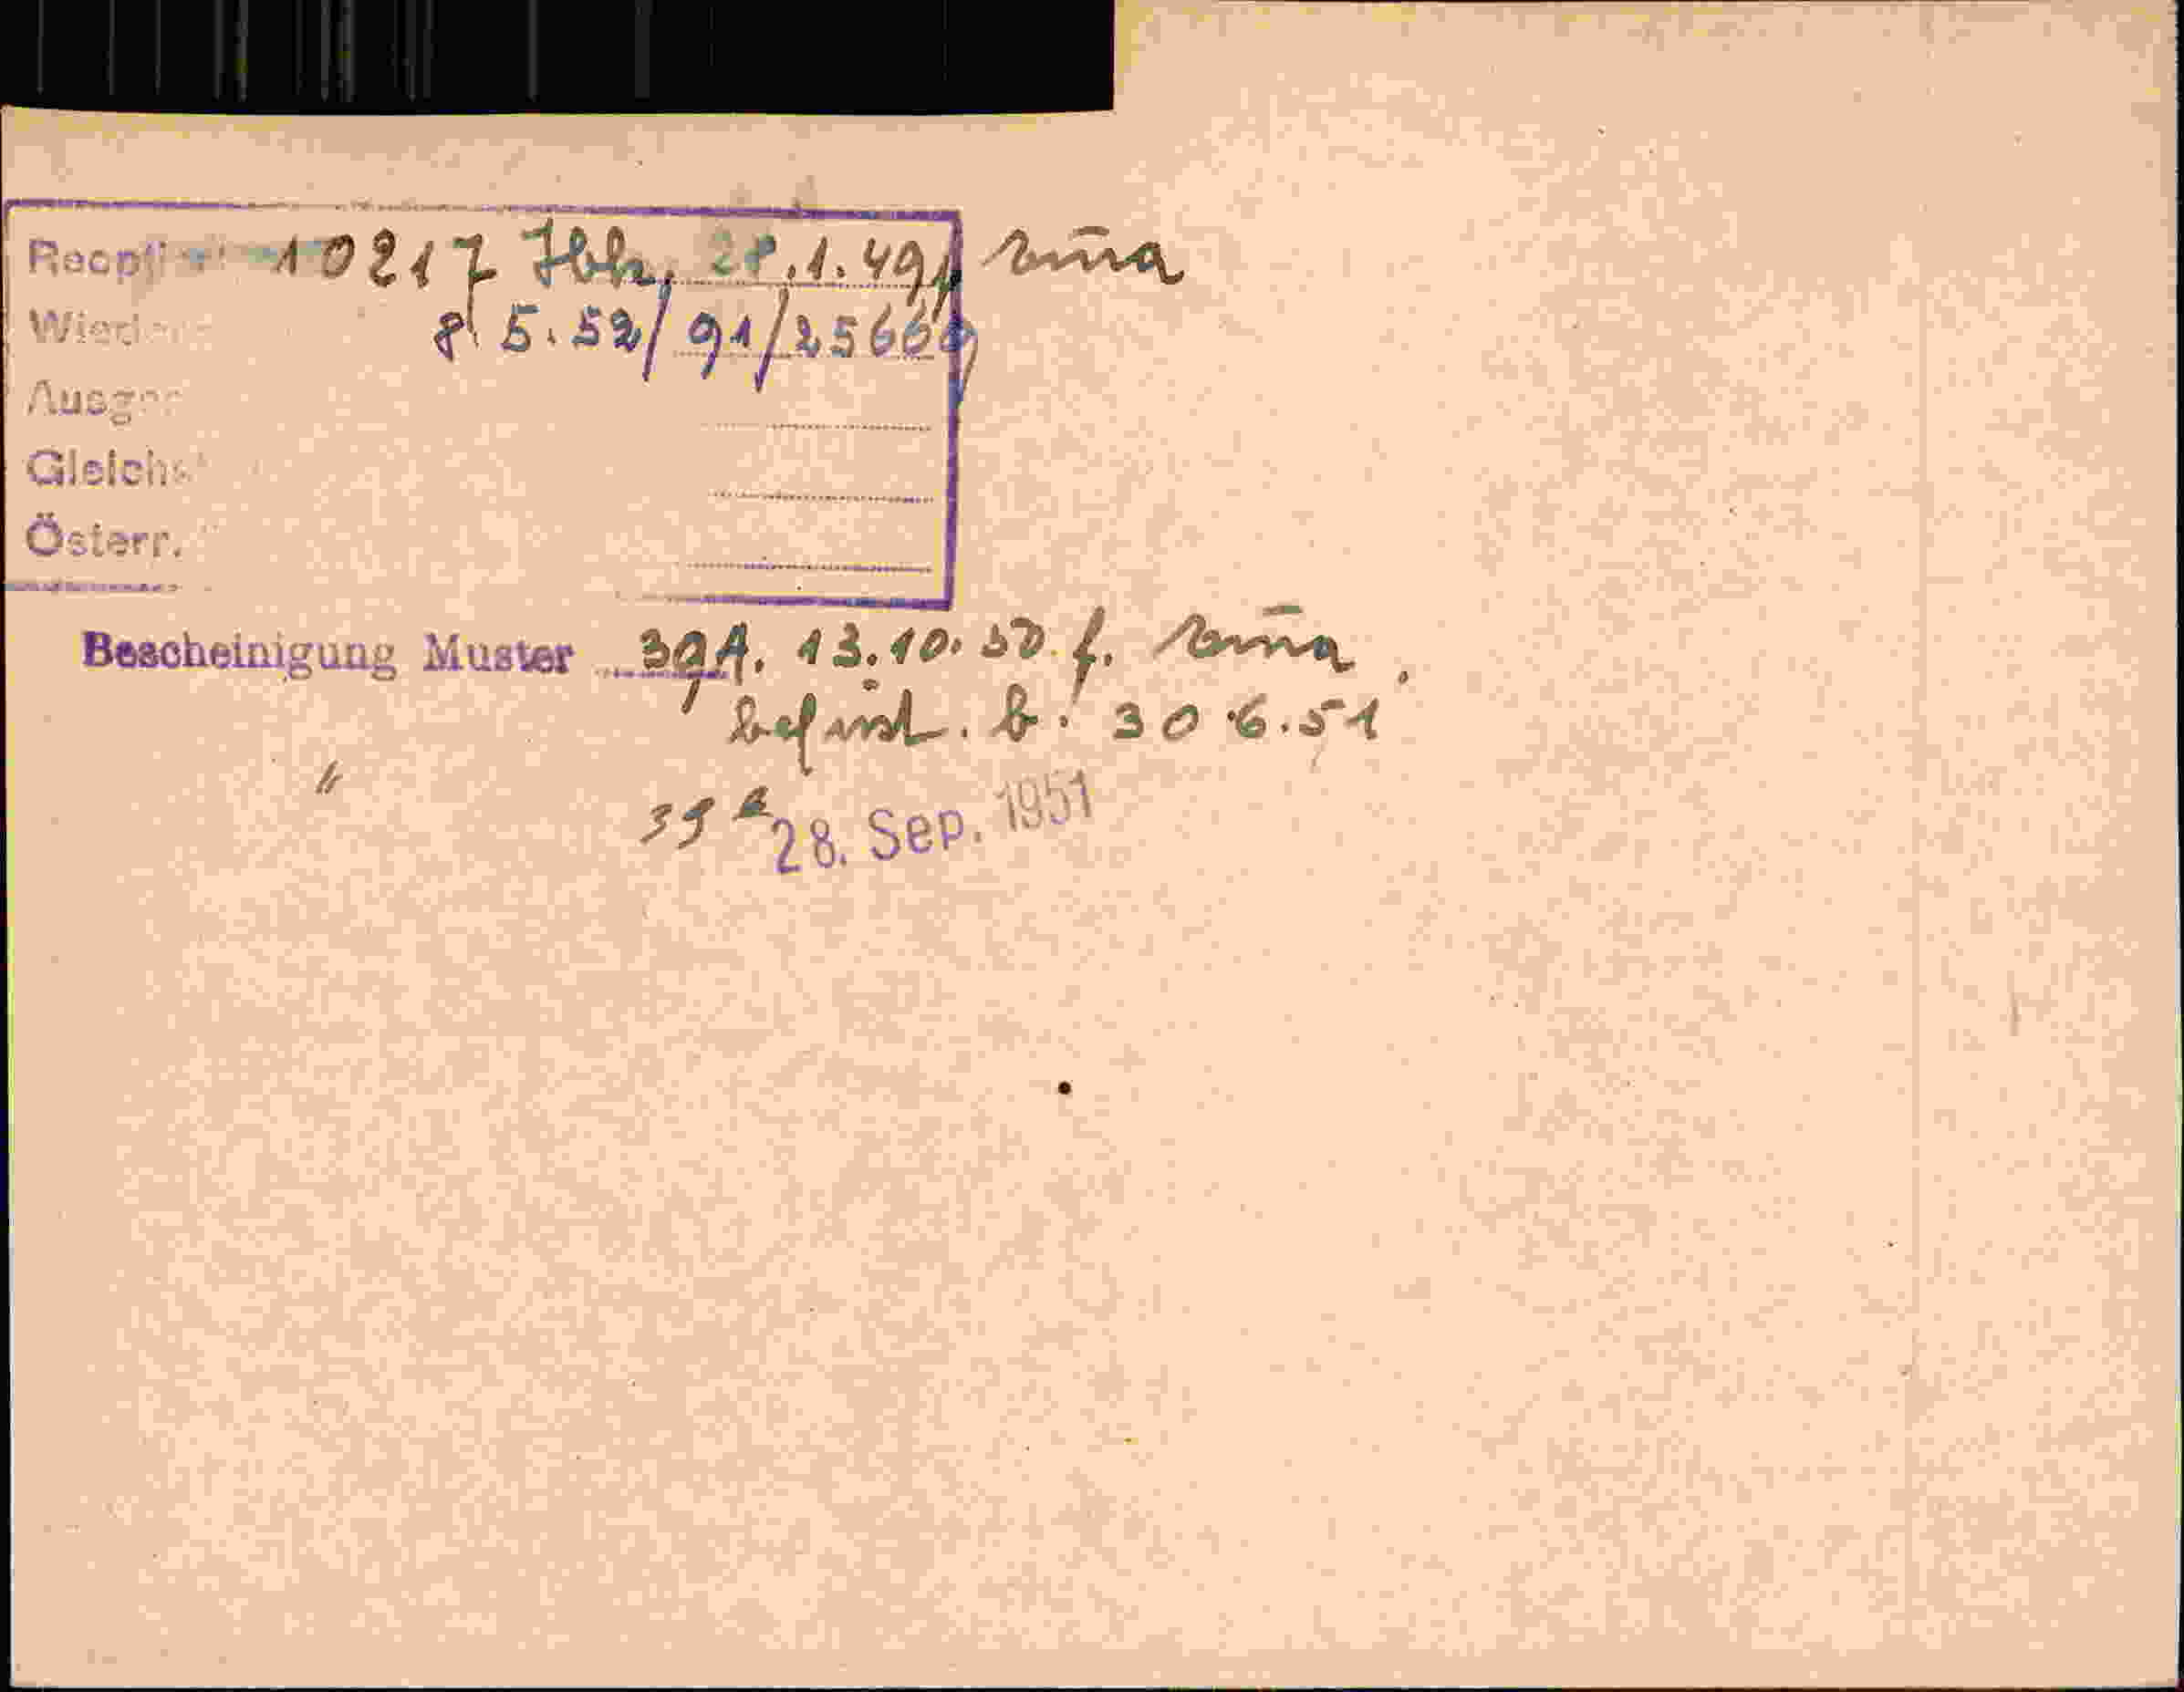 10217 Jbk. 28.1.49
8. 5. 52/ 91/2566
Ausg
Gleichs
Österr.
Bescheinigung Muster 39A. 13.10.50. f.
befrist. b. 30 6.51
" 39 a 28. Sep. 1951